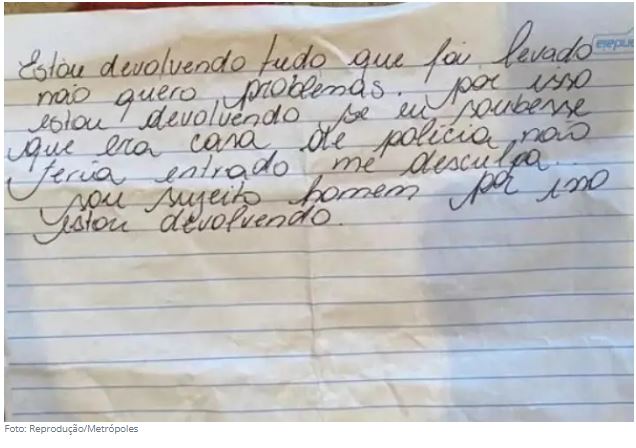 Estou devolvendo tudo que foi levado
não quero problemas. por isso
estou devolvendo se eu soubesse
que era casa de policia não
teria entrado me desculpa...
sou sujeito homem por isso
estou devolvendo.
Foto: Reprodução/Metrópoles